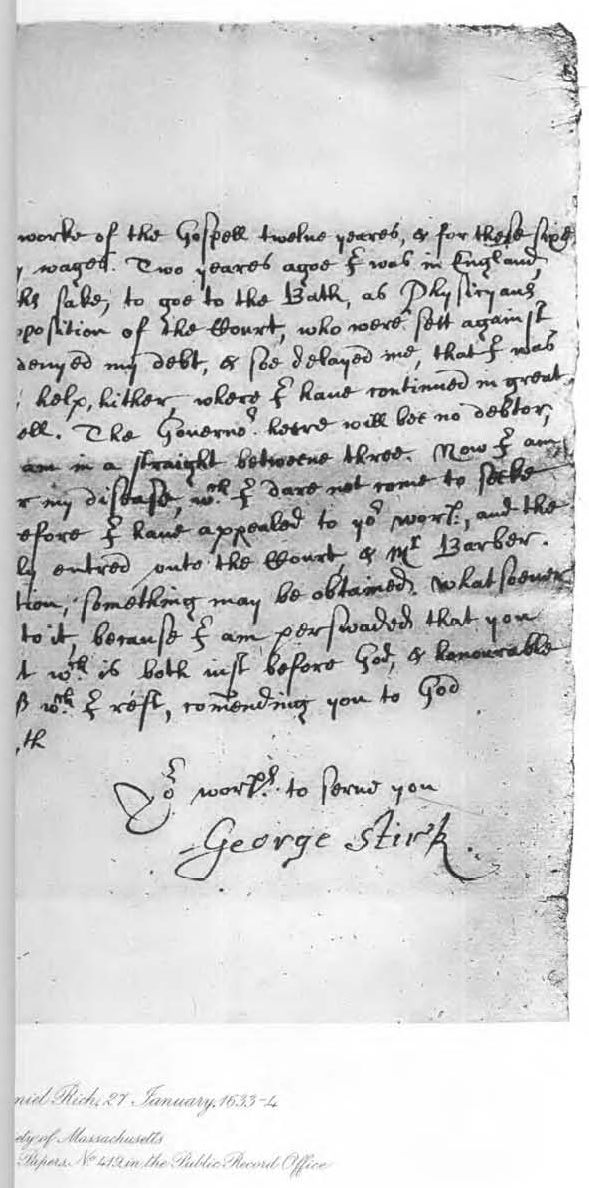 worke of the Gospell twelve yeares, & for these sixe
wages. Two yeares agoe I was in England,
sake, to goe to the Bath, as Physicyans
position of the Court, who were sett against
denyed my debt, & soe delayed me, that I was
help, hither, where I have continued in great
ell. The Governor heere will bee no debtor,
am in a straight betweene three. Now I am
r my disease, wch I dare not come to seeke
efore I have appealed to yor worp. and the
ly entred onto the Court, & Mr Barber.
tion, something may be obtained. Whatsoever
to it, because I am perswaded that you
t wch is both iust before God, & honourable
wch I rest, comending you to God
th
Yor worps. to serve you
George Stirk.
niel Rich, 27 January, 1633-4
ety of Massachusetts
Papers. No 419 in the Public Record Office